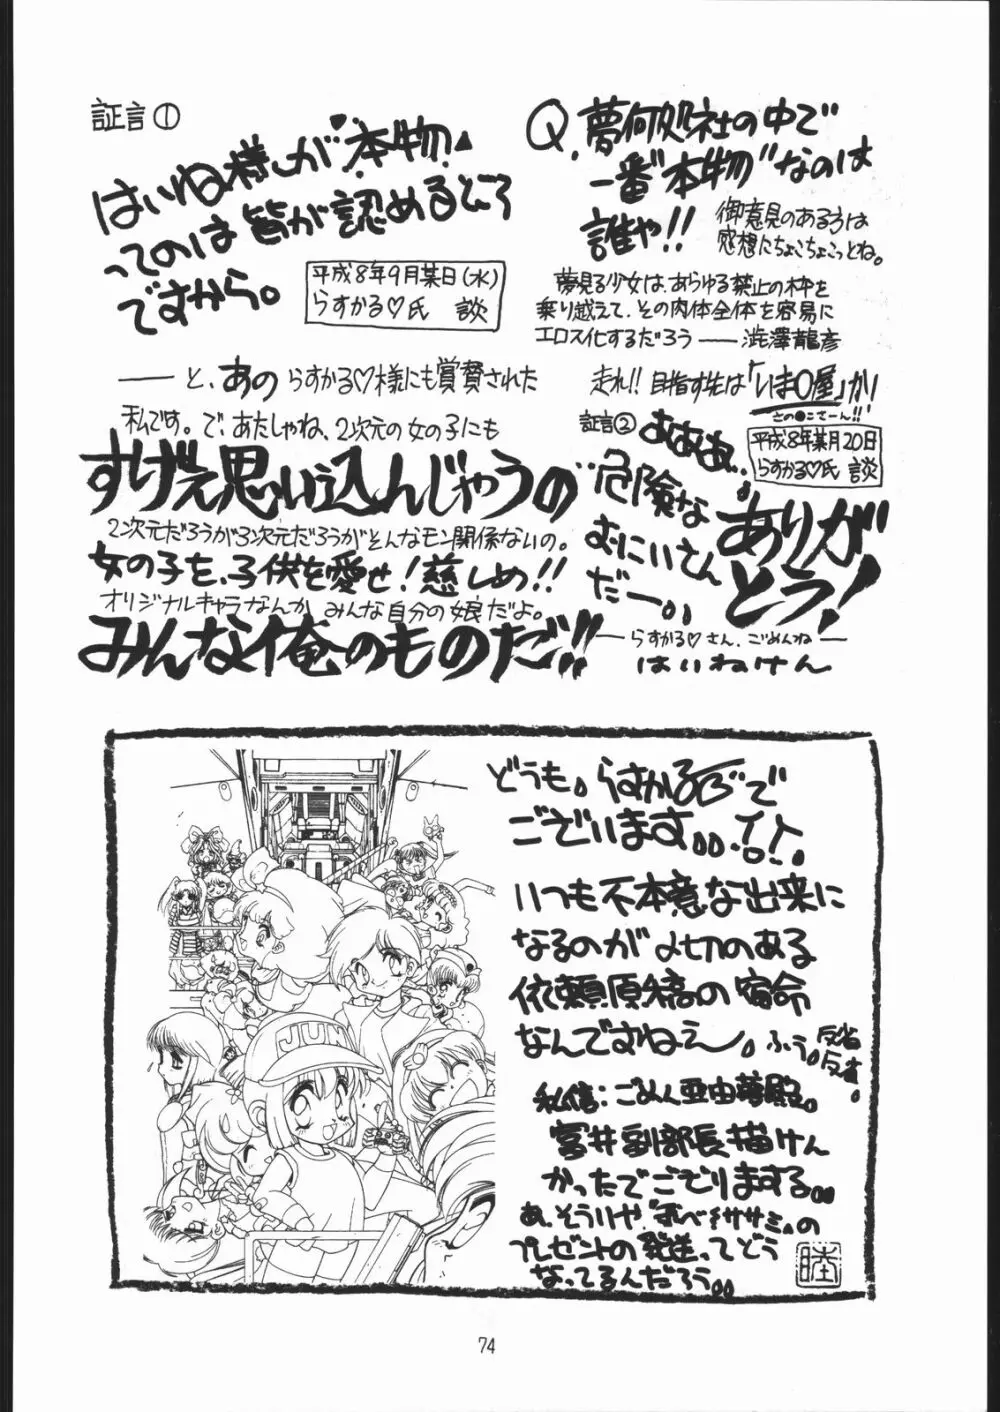 証言①
はいね様が“本物”
ってのは皆が認めるところ
ですから。
平成8年9月某日(水)
らすかる♡氏 談
Q.夢何処社の中で
一番“本物”なのは
誰や!!
御意見のある方は
感想にちょこちょこっとね。
夢見る少女は、あらゆる禁止の枠を
乗り越えて、その肉体全体を容易に
エロス化するだろう——澁澤龍彦
——と、あのらすかる♡様にも賞賛された
私です。で、あたしゃね、2次元の女の子にも
すげえ思い込んじゃうの
2次元だろうが3次元だろうがそんなモン関係ないの。
女の子を、子供を愛せ!慈しめ!!
オリジナルキャラなんか、みんな自分の娘だよ。
みんな俺のものだ!!
走れ!! 目指す先は「いま〇屋」か!
さの●こさーん!!
証言②
平成8年某月20日
らすかる♡氏 談
あああ、、
危険な
おにいさん
だー。。
ありが
とう!
—らすかる♡さん、ごめんね—
はいねけん
JUN
どうも。らすかるで
ございます。。
いつも不本意な出来に
なるのが〆切のある
依頼原稿の宿命
なんですねえ〜。ふう。
反省
反省。
私信:ごめん亜由夢殿。
宮井副部長描けん
かったでござりまする。。
あ、そういや“すべ〜ササミ”の
プレゼントの発送ってどう
なってるんだろう。。
睦
74